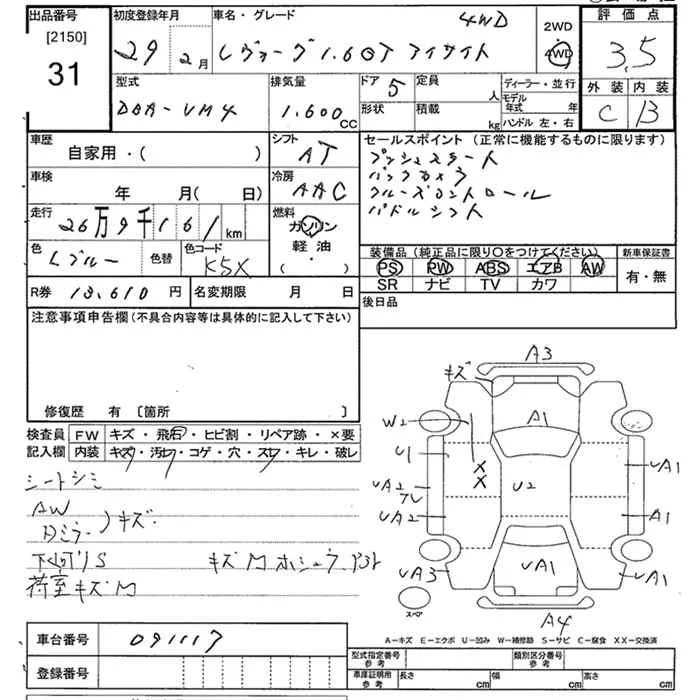 出品番号 初度登録年月 車名・グレード 4WD 2WD 評価点
[2150]
31 29年 2月 レヴォーグ 1.6GT アイサイト 4WD 3.5
型式 排気量 ドア 5 定員 人 ディーラー・並行 外装 内装
DBA-VM4 1.600cc 形状 積載 kg モデル年式 年 C B
ハンドル 左・右
車歴 自家用・( ) シフト AT セールスポイント (正常に機能するものに限ります)
プッシュスタート
車検 年 月( 日) 冷房 AAC バックカメラ
クルーズコントロール
走行 26万9千161km 燃料 ガソリン パドルシフト
軽油
・( )
色 Lブルー 色替 色コード K5X 装備品(純正品に限り○をつけてください) 新車保証書
PS PW ABS エアB AW 有・無
SR ナビ TV カワ
R券 13,610円 名変期限 月 日 後日品
注意事項申告欄(不具合内容等は具体的に記入して下さい)
修復歴 有 [箇所 ]
検査員 FW キズ・飛石・ヒビ割・リペア跡・×要
記入欄 内装 キズ・汚れ・コゲ・穴・スレ・キレ・破レ
シートシミ
AW
Dミラー )キズ
下回りS
荷室キズM
A3
キズ
W2 A1
U1 X UA1
UA2 X U2
UA2 A1
UA3 UA1 UA1
スペア A4
A-キズ E-エクボ U-凹み W-補修跡 S-サビ C-腐食 XX-交換済
車台番号 091117 型式指定番号 参考 類別区分番号 参考
登録番号 車庫証明用 参考 長さ cm 幅 cm 高さ cm